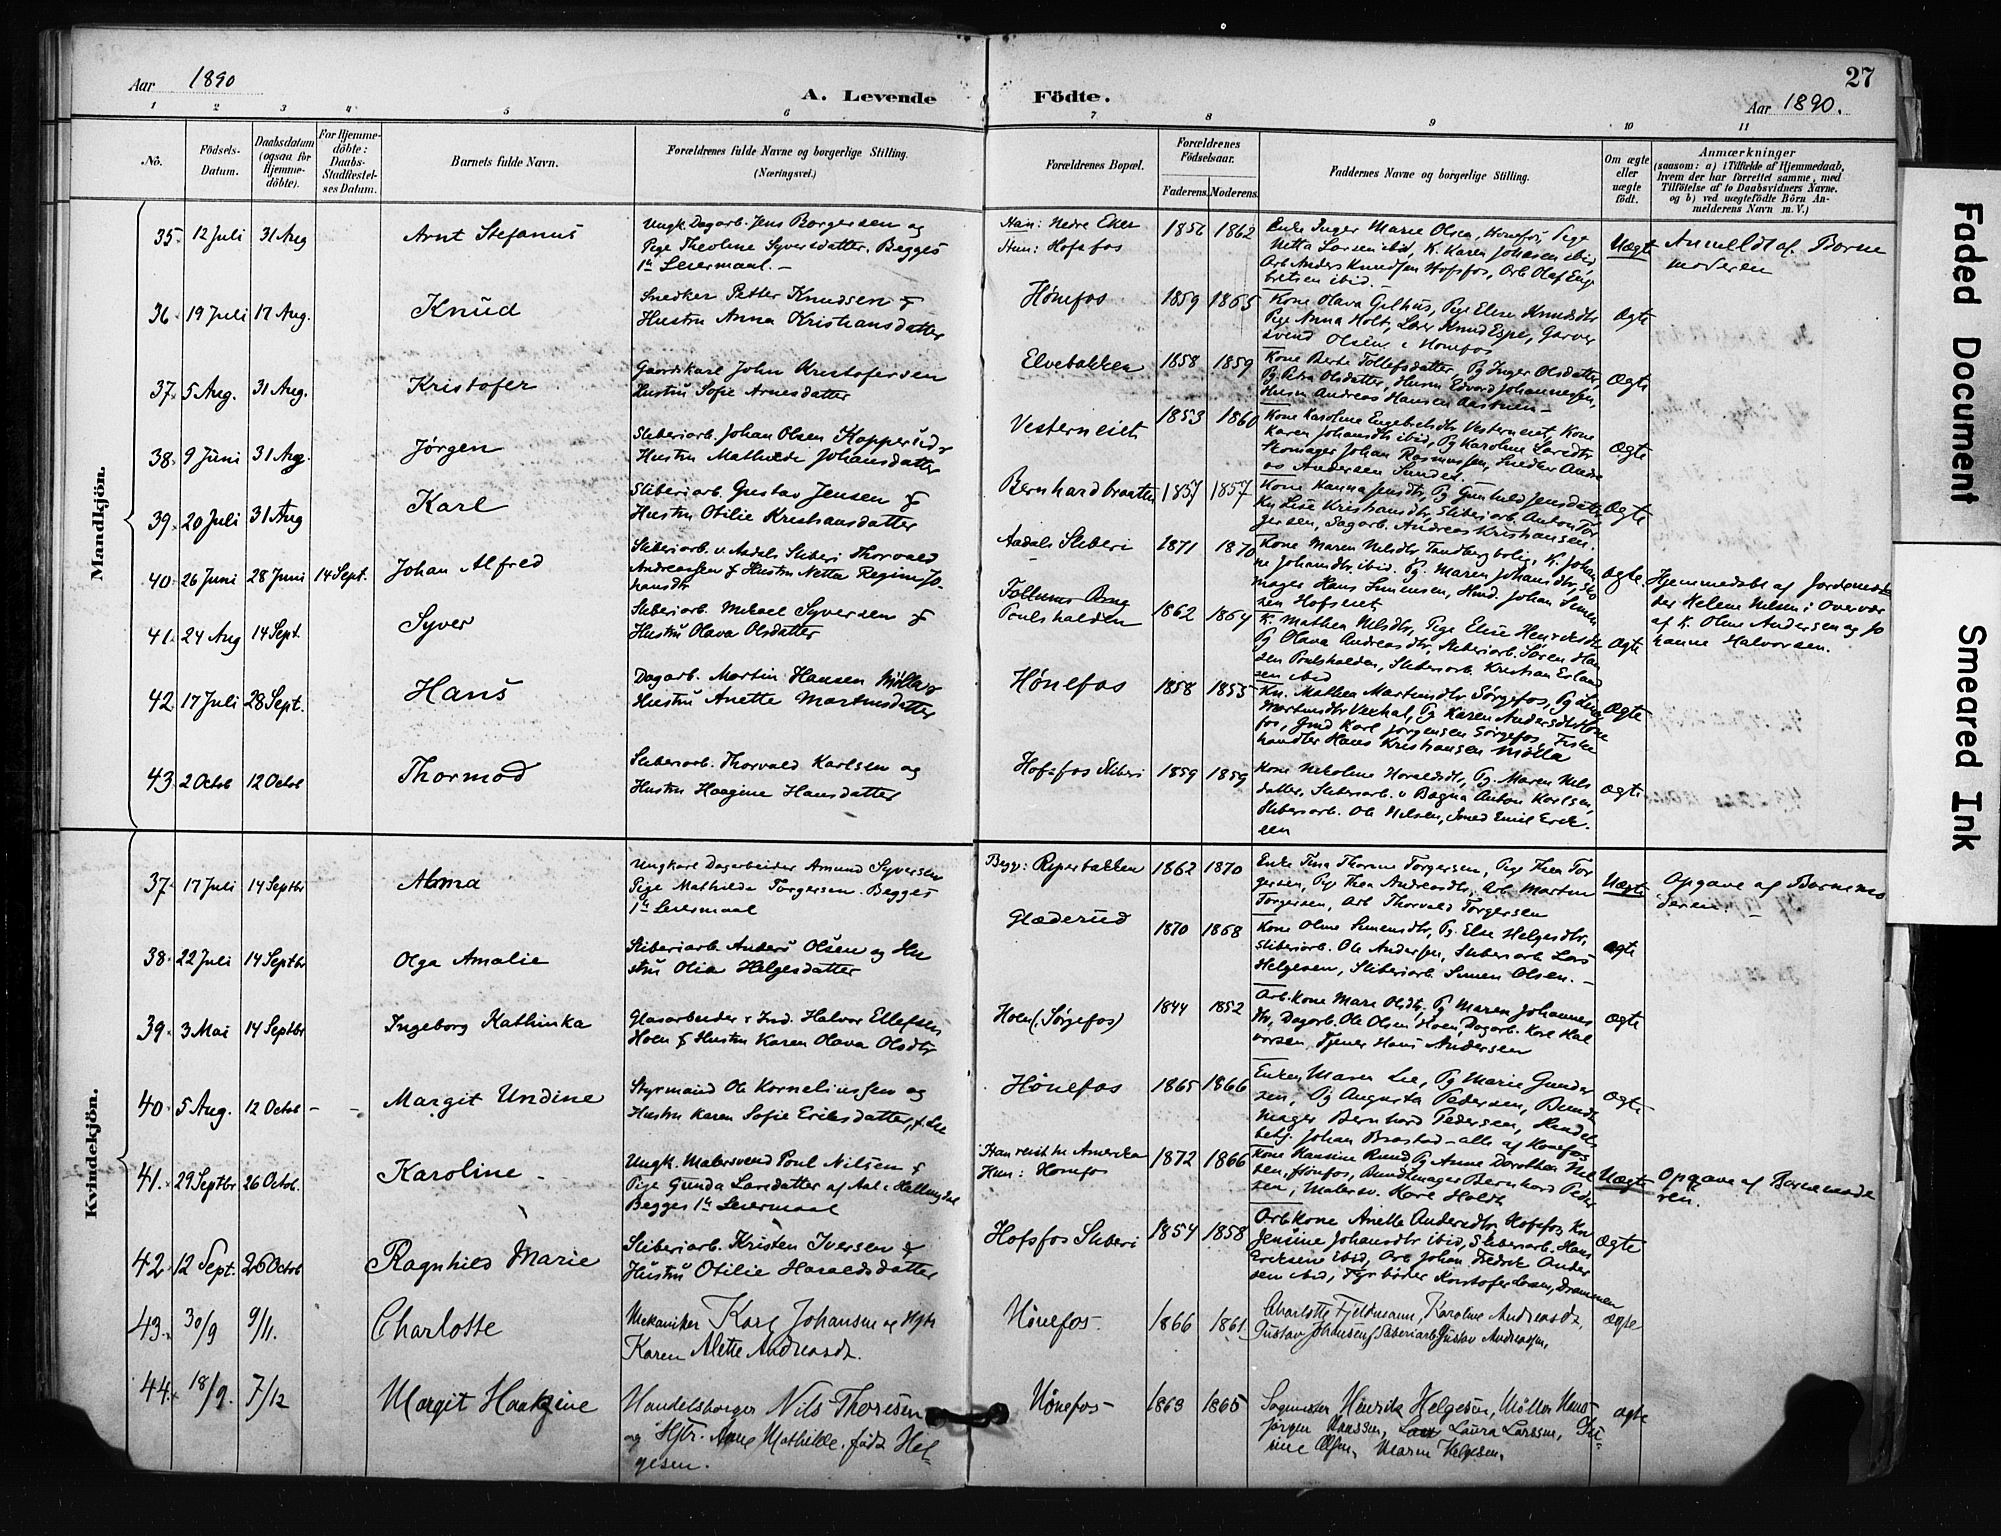 Aar 1890
A. Levende Födte.
27
Aar 1890.
1 2 3 4 5 6 7 8 9 10 11
No.
Födsels-Datum.
Daabsdatum (ogsaa for Hjemme-döbte).
For Hjemme-döbte: Daabs-Stadfæstel-ses Datum.
Barnets fulde Navn.
Forældrenes fulde Navne og borgerlige Stilling. (Næringsvei.)
Forældrenes Bopæl.
Forældrenes Födselsaar.
Faderens. Moderens.
Faddernes Navne og borgerlige Stilling.
Om ægte eller uægte født.
Anmærkninger
(saasom: a) i Tilfælde af Hjemmedaab,
hvem der har forrettet samme, med
Tilföielse af to Daabsvidners Navne.
og b) ved uægtefödte Börn An-
melderens Navn m. V.)
Mandkjön.
35. 12 Juli 31 Aug Arnt Stefanus
Ungk. Dagarb. Jens Borgersen og
Pige Theoline Syversdatter. Begges
1ste Leiermaal. –
Han: Nedre Eker
Hun: Hofsfos
1856 1862
Enke Inger Marie Olsen, Hønefos, Pige
Netta Larsen ibid, K. Karen Johnsen ibid,
Arb. Anders Knudsen Hofsfos, Arb Olaf Enge
bretsen ibid. –
Uægte
Anmeldt af Barne
moderen
36. 19 Juli 17 Aug. Knud
Snedker Petter Knudsen &
Hustru Anna Kristiansdatter
Hønefos 1859 1865
Kone Olava Gelhus, Pige Elise Knudsdtr
Pige Anna Holt, Lærer Knud Espe, Garver
svend Olsen i Hønefos
Ægte
37. 5 Aug. 31 Aug. Kristofer
Gaardskarl John Kristofersen
Hustru Sofie Arnesdatter
Elvebakken 1858 1859
Kone Berte Tollefsdatter, Pg Inger Olsdatter,
Pg. Petra Olsdatter, Husm Edvard Johannessen,
Husm Andreas Hansen
Ægte
38. 9 Juni 31 Aug. Jørgen
Sliberiarb. Johan Olsen Kopperud &
Hustru Mathilde Johansdatter
Vesterneiet 1853 1860
Kone Karoline Engebretsdtr Vesterneiet, Kone
Karen Johansdtr ibid, Pg Karoline Larsdtr
Skomager Johan Rasmussen, Snedker Andre
as Andersen Sundet.
Ægte
39. 20 Juli 31 Aug Karl
Sliberiarb. Gustav Jensen &
Hustru Otilie Kristiansdatter
Bernhardbraaten 1857 1857
Kone Hanna Jensdtr, Pg Gunhild Jensdatter
Kn Lise Kristiansdtr, Sliberiarb. Anton Tor
gersen, Dagarb. Andreas Kristiansen.
Ægte
40. 26 Juni 28 Juni 14 Sept. Johan Alfred
Sliberiarb. v. Aadals Sliberi Thorvald
Andreassen & Hustru Netta Regine Jo
hansdtr
Aadals Sliberi 1871 1870
Kone Maren Nelsdtr Tandbergbolig, K. Johan
ne Johansdtr ibid. Pg. Maren Johansdtr, Sko
mager Hans Simensen, Smed. Johan Simen
sen Hofseiet
Ægte.
Hjemmedøbt af Jordemo
der Helene Nelsen i Overvær
af K. Oline Andersen og Jo
hanne Halvorsen.
41. 24 Aug 14 Sept. Syver
Sliberiarb. Mikael Syversen &
Hustru Olava Olsdatter
Follums Brug
Poulshalden 1862 1864
K. Mathea Nilsdtr, Pige Elise Henriksdtr
Pg Olava Andreasdtr, Sliberiarb. Søren Han
sen Poulshalden, Sliberiarb. Kristian Erland
sen ibid
Ægte
42 17 Juli 28 Sept. Hans
Dagarb. Martin Hansen Mölla &
Hustru Anette Martinsdatter
Hønefos 1858 1855
Kn. Mathea Martinsdtr Sørgefos, Pg Lena
Martinsdtr Vexhal, Pg Karen Andersdtr Høne
fos, Gmd Karl Jørgensen Sørgefos, Fiske
handler Hans Kristiansen Mölla
Ægte
43. 2 Octob 12 Octob Thormod
Sliberiarb. Thorvald Karlsen og
Hustru Haagine Hansdatter
Hofsfos Sliberi 1859 1859
Kone Nikoline Haraldsdtr, Pg. Maren Nels
datter, Sliberiarb. v Bagna Anton Karlsen,
Sliberiarb. Ole Nelsen, Smed Emil Erik
sen
Ægte
Kvindekjön.
37. 17 Juli 14 Septbr Alma
Ungkarl Dagarbeider Amund Syversen
Pige Mathilde Torgersen. Begges
1ste Leiermaal
Begge: Ryperbakken 1862 1870
Enke Tina Thorine Torgersen, Pige Thea Tor
gersen, Pige Thea Andreasdtr, Arb. Martin
Torgersen, Arb Thorvald Torgersen
Uægte
Opgave af Barnemo
deren. –
38. 22 Juli 14 Septbr Olga Amalie
Sliberiarb. Anders Olsen og Hu
stru Olia Helgesdatter
Glæderud 1870 1868
Kone Oline Simensdtr, Pg. Else Helgesdtr,
Sliberiarb. Ole Andersen, Sliberiarb Lars
Helgesen, Sliberiarb Simen Olsen. –
ægte
39. 3 Mai 14 Septbr Ingeborg Kathinka
Glasarbeider & Ind. Halvor Ellefsen
Hoen & Hustru Karen Olava Olsdtr
Hoen (Sørgefos) 1844 1852
Arb.kone Mari Olsdtr, Pg Maren Johannes
dtr, Dagarb. Ole Olsen Hoen, Dagarb. Karl Hal
vorsen, Tjener Hans Andersen
ægte
40. 5 Aug. 12 Octob – – Margit Undine
Styrmand Ole Korneliussen og
Hustru Karen Sofie Eriksdatter, f. Lie
Hønefos 1865 1866
Enken Maren Lie, Pg Marie Gunder
sen, Pg Augusta Pedersen, Bundt
mager Bernhard Pedersen, Handels
betj. Johan Brastad – alle af Hønefos
ægte
41. 29 Septbr 26 Octob. Karoline –
Ungk. Malersvend Poul Nilsen &
Pige Gunda Larsdatter af Aal i Hallingdal
Begges 1ste Leiermaal
Han reist til Amerika
Hun: Hønefos
1872 1866
Kone Hansine Rund Pg Anne Dorothea Niel
sen, Hønefos, Bundtmager Bernhard Peder
sen, Malersv. Karl Holdt
Uægte
Opgave af Barnemode
ren.
42. 12 Sept. 26 Octob Ragnhild Marie
Sliberiarb. Kristen Iversen &
Hustru Otilie Haraldsdatter
Hofsfos Sliberi 1854 1858
Arb.kone Anette Andersdtr Hofsfos, Kn
Jensine Johansdtr ibid, Sliberiarb. Hans
Eriksen ibid, Arb Johan Fredrik Ander
sen ibid, Fyrbøder Kristofer Loe, Drammen
Ægte
43. 30/9 9/11. Charlotte
Mekaniker Karl Johansen og Hstr
Karen Alette Andreasdt.
Hönefos. 1866 1861
Charlotte Fjeldmann, Karoline Andreasdt,
Gustav Johansen, Sliberiarb. Gustav Andreassen,
ægte
44. 18/9. 7/12 Margit Haakine
Handelsborger Nils Thoresen
og Hstr. Anne Mathilde født Hel-
gesen.
Hönefos – 1863 1865
Henrik Helgesen, Möller Hans
Jörgen Hanssen, Laura Larssen,
ine Olsen, Maren Helgesen.
ægte
Faded Document
Smeared Ink